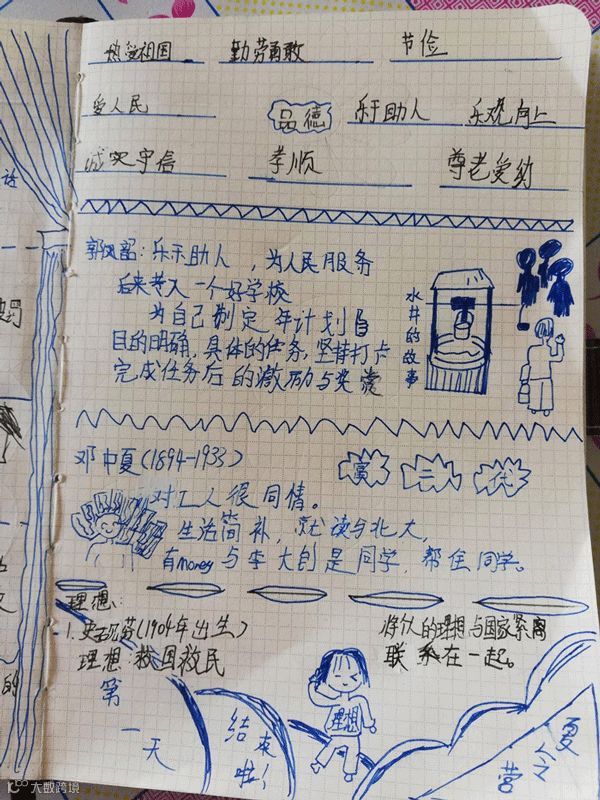 热爱祖国 勤劳勇敢 节俭
爱人民 品德 乐于助人 乐观向上
诚实守信 孝顺 尊老爱幼
郭凤韶:乐于助人,为人民服务
后来考入一个好学校
为自己制定 年计划
目的明确,具体的任务,坚持打卡
完成任务后的激励与奖赏
水井的故事
邓中夏(1894-1933)
富 二 代
对工人很同情。
生活简补,就读与北大,
有money 与李大钊是同学,帮住同学。
理想:
1.史砚芬(1904年出生)
理想:救国救民
将个人的理想与国家紧密
联系在一起。
第一天
结束啦!
理想
夏令营
的
大数跨境